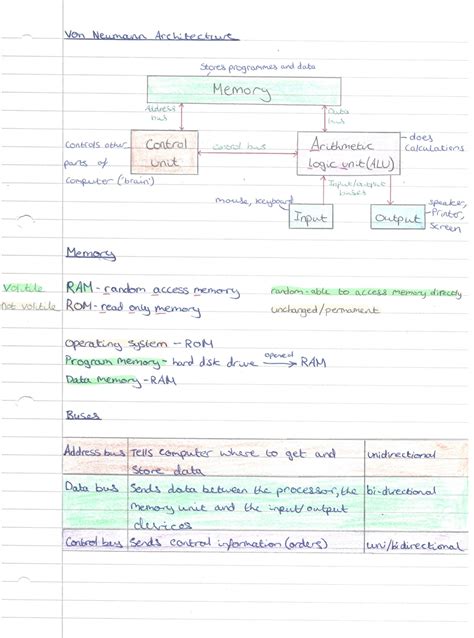 Von Neumann Architecture
Stores programmes and data
Memory
Address bus
Data bus
Controls other parts of computer ('brain')
Control unit
control bus
Arithmetic Logic unit (ALU)
- does calculations
Input/output
mouse, keyboard
Input
Output
speaker, Printer, screen
Memory
Volitile RAM - random access memory random-able to access memory directly
not volitile ROM - read only memory unchanged/permanent
Operating system - ROM
Program memory - hard dsk drive opened → RAM
Data memory - RAM
Buses
Address bus Tells computer where to get and store data unidirectional
Data bus Sends data between the processor, the memory unit and the input/output devices bi-directional
Control bus Sends control information (orders) uni/bidirectional